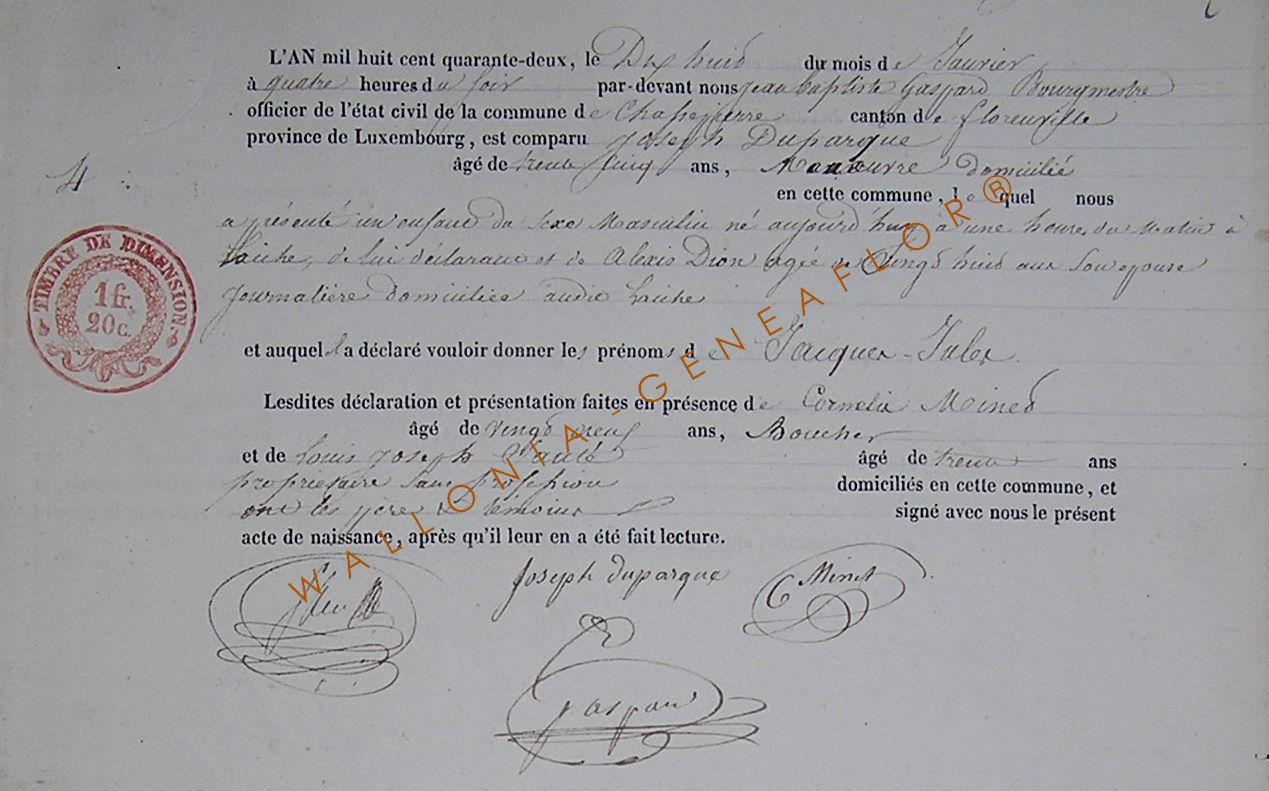 L'AN mil huit cent quarante-deux, le Dix huid du mois de Janvier
à quatre heures du soir par-devant nous jean baptiste Gaspard Bourgmestre
officier de l'état civil de la commune de Chassepierre canton de florenville
province de Luxembourg, est comparu Joseph Duparque
âgé de trente Cinq ans, Manœuvre domicilié
4
en cette commune, lequel nous
a présenté un enfant du sexe Masculin né aujourd'huy à une heure du Matin à
Laiche, de lui déclarant et de Alexis Dion agée de Vingd huid ans Son epouse
Journalière domiciliée audit Laiche
TIMBRE DE DIMENSION.
1 fr.
20 c.
et auquel il a déclaré vouloir donner les prénoms de Jacques-Jules
Lesdites déclaration et présentation faites en présence de Cornelis Mined
âgé de vingd neuf ans, Boucher
et de Louis Joseph âgé de trente ans
propriétaire Sans profession domiciliés en cette commune, et
ont les père & témoins signé avec nous le présent
acte de naissance, après qu'il leur en a été fait lecture.
Joseph duparque C Minet
gaspard
WALLONIA-GENEAFLOR®